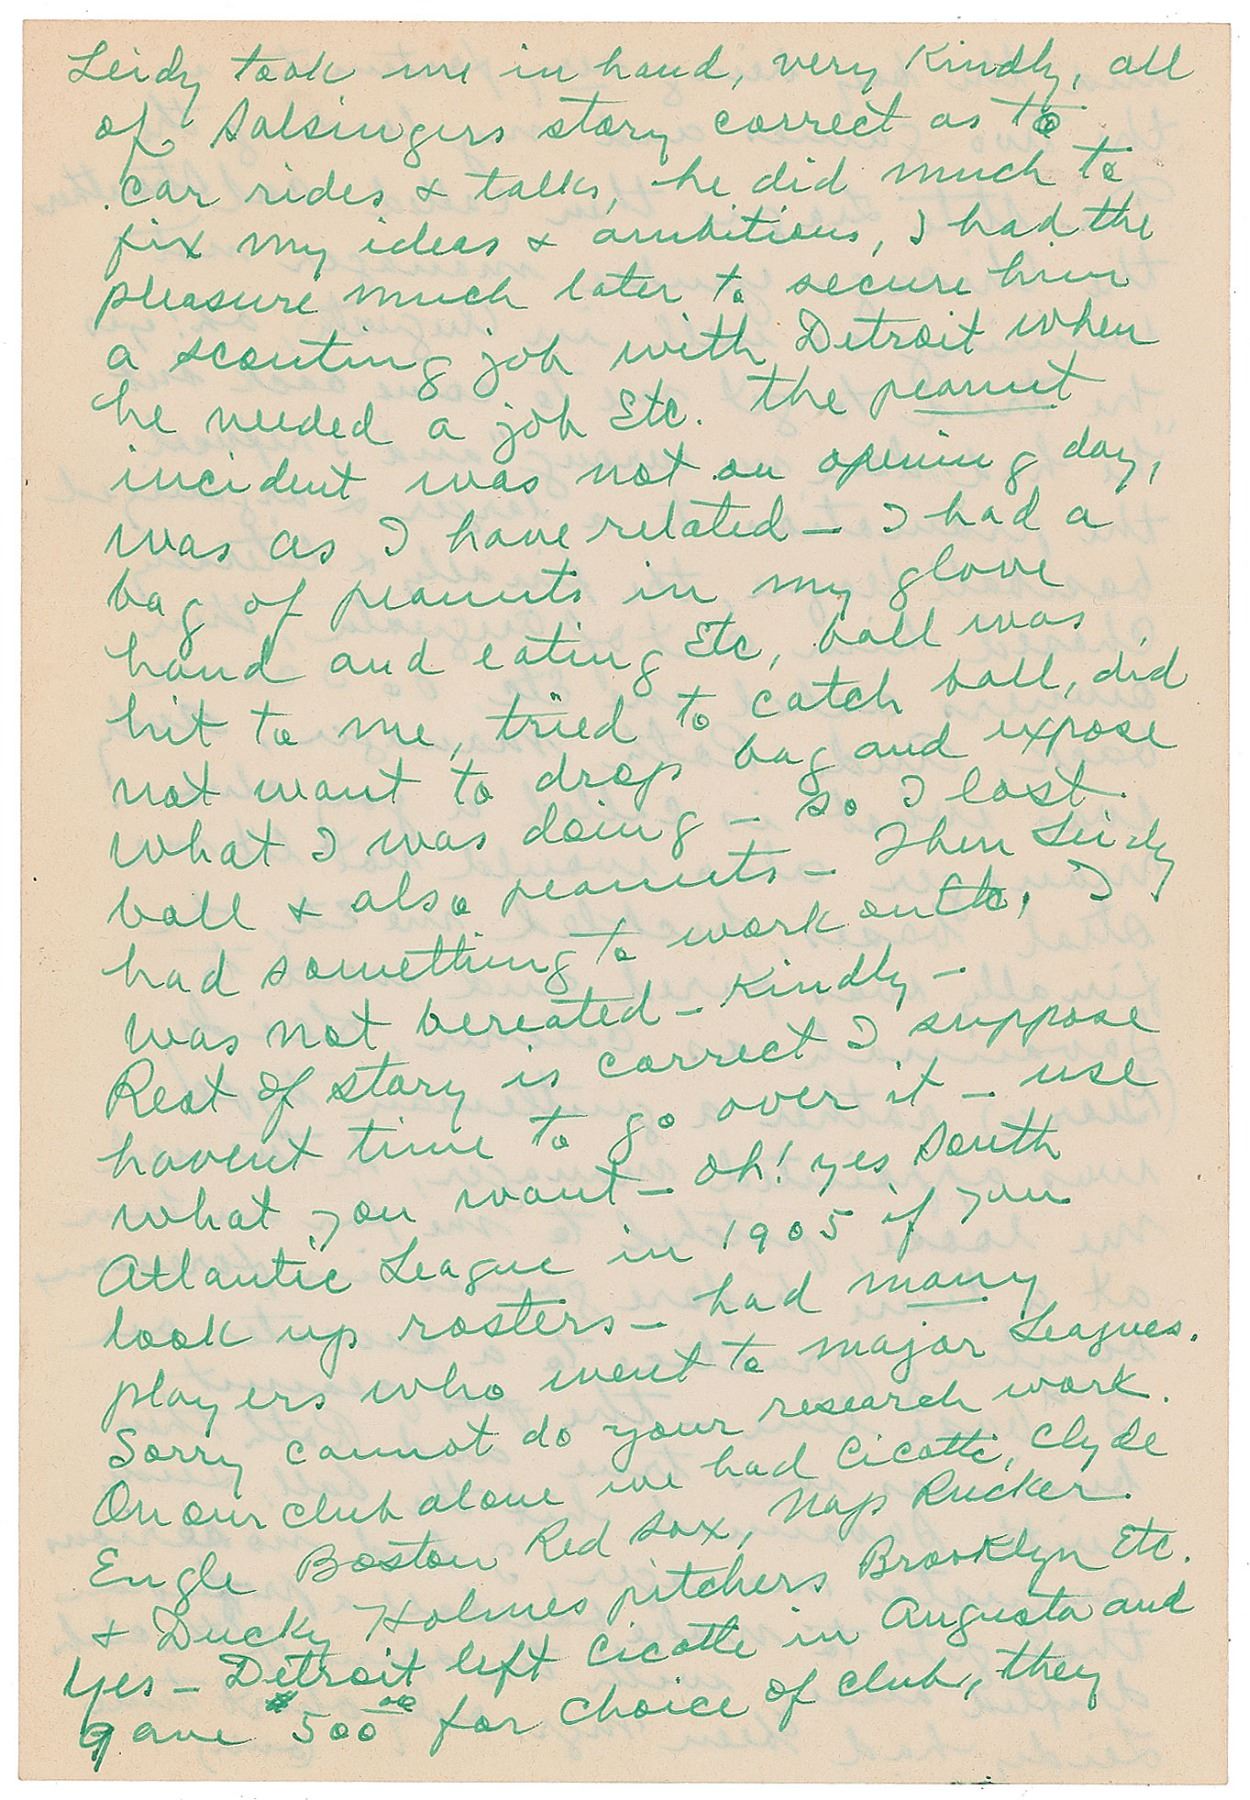 Leidy took me in hand, very Kindly, all
of Salsingers story correct as to
car rides & talks, he did much to
fix my ideas & ambitious, I had the
pleasure much later to secure him
a scouting job with Detroit when
he needed a job Etc. The peanut
incident was not on opening day,
was as I have related – I had a
bag of peanuts in my glove
hand and eating Etc, ball was
hit to me, tried to catch ball, did
not want to drop bag and expose
what I was doing – so I lost
ball & also peanuts – Then Leidy
had something to work on, I
was not bereated – Kindly –
Rest of story is correct I suppose
havent time to go over it – use
what you want – oh! yes South
Atlantic League in 1905 if you
look up rosters – had many
players who went to major Leagues.
Sorry cannot do your research work.
On our club alone we had Cicotte, Clyde
Engle Boston Red Sox, Nap Rucker.
& Ducky Holmes pitchers Brooklyn Etc.
Yes – Detroit left Cicotte in Augusta and
gave $500 00 for choice of club, they